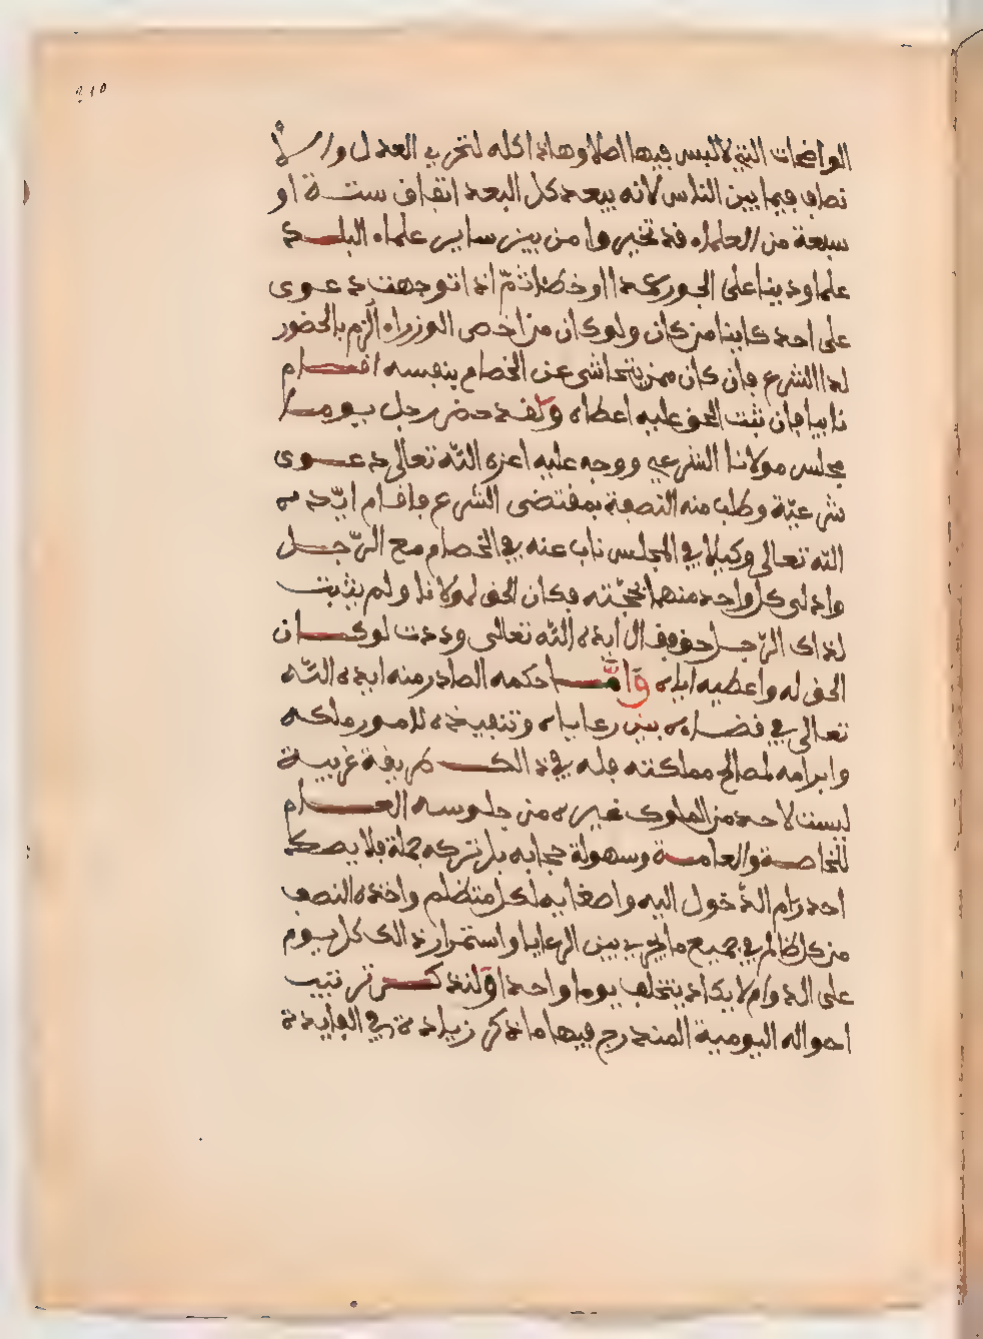 ٢١٥
الواضحات التي لا لبس فيها اصلا وهاذا كله لتحري العدل والا
نصاف فيما بين الناس لانه يبعد كل البعد اتفاق ستة او
سبعة من العلماء قد تخيروا من بين ساير علماء البلد
علما ودينا على الجور عمدا او خطا ثمّ اذا توجهت دعوى
على احد كاينا من كان ولو كان من اخص الوزراء ألزم بالحضور
لدا الشرع فان كان ممن يتحاشى عن الخصام بنفسه اقام
نايبا فان ثبت الحق عليه اعطاه ولقد حضر رجل يوما
مجلس مولانا الشرعي ووجه عليه اعزه الله تعالى دعوى
شرعيّة وطلب منه النصفة بمقتضى الشرع فاقام ايّده
الله تعالى وكيلا في المجلس ناب عنه في الخصام مع الرّجل
وادلى كل واحد منهما بحجّته فكان الحق لمولانا ولم يثبت
لذاك الرّجل حق فقال ايده الله تعالى وددت لو كان
الحق له واعطيه اياه وَامَّا حكمه الصادر منه ايده الله
تعالى في قضاءه بين رعاياه وتنفيذه لامور ملكه
وابرامه لمصالح مملكته فله في ذالك طريقة غريبة
ليست لاحد من الملوك غيره من جلوسه العام
للخاصة والعامة وسهولة حجابه بل تركه جملة فلا يصد
احد رام الدّخول اليه واصغايه لكل متظلم واخذه النصف
من كل ظالم في جميع ما يجري بين الرعايا واستمرار ذالك كل يوم
على الدوام لا يكاد يتخلف يوما واحدا وَلنذكر ترتيب
احواله اليومية المندرج فيها ما ذكر زيادة في الفايدة